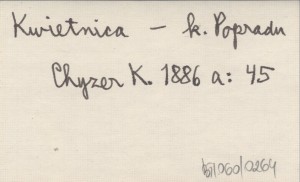 Kwietnica – k. Popradu
Chyzer K. 1886 a: 45
/060/0264